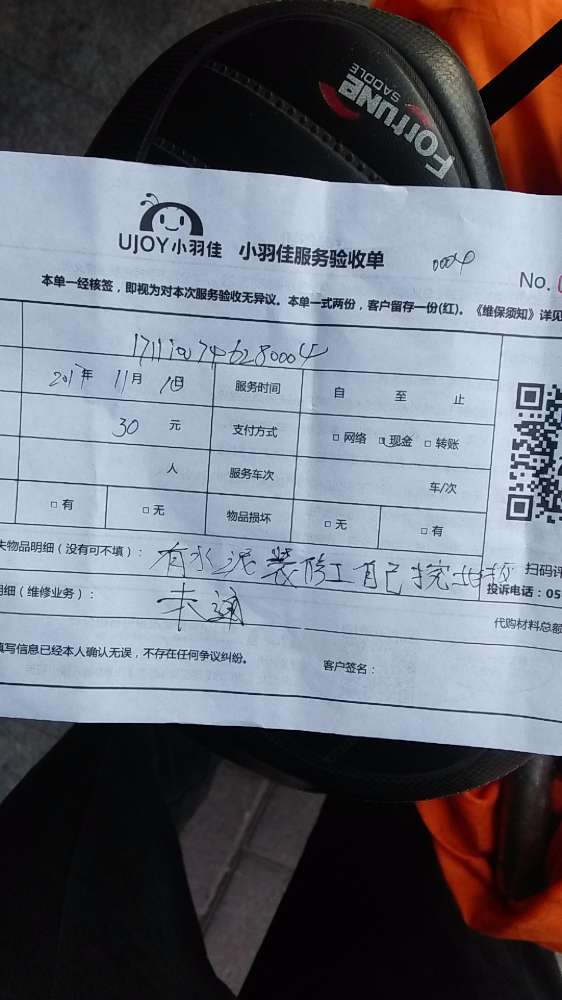 FOrTUNE
SADDLE
UJOY小羽佳 小羽佳服务验收单 0004 No.
本单一经核签，即视为对本次服务验收无异议。本单一式两份，客户留存一份(红)。《维保须知》详见
2017年 11月 1日 服务时间 自 至 止
30 元 支付方式 □ 网络 □ 现金 □ 转账
人 服务车次 车/次
□ 有 □ 无 物品损坏 □ 无 □ 有
失物品明细（没有可不填）： 有水泥装修工自己 扫码评
明细（维修业务）： 未通 投诉电话：05
代购材料总额
填写信息已经本人确认无误，不存在任何争议纠纷。 客户签名：